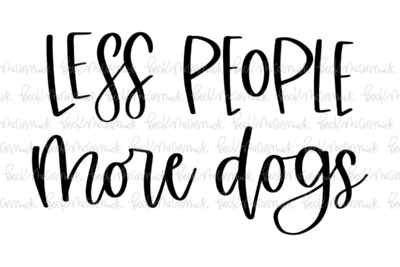 LESS PEOPLE
more dogs